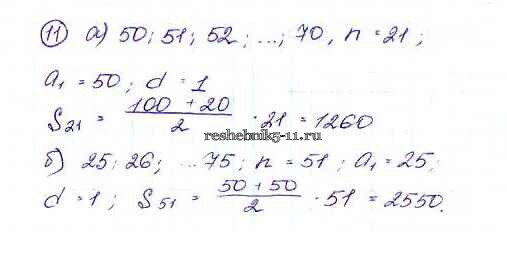 11 а) 50; 51; 52; ...; 70, n = 21;
a₁ = 50; d = 1
S₂₁ = (100 + 20)/2 · 21 = 1260
reshebnik5-11.ru
б) 25; 26; ...75; n = 51; a₁ = 25;
d = 1; S₅₁ = (50 + 50)/2 · 51 = 2550.